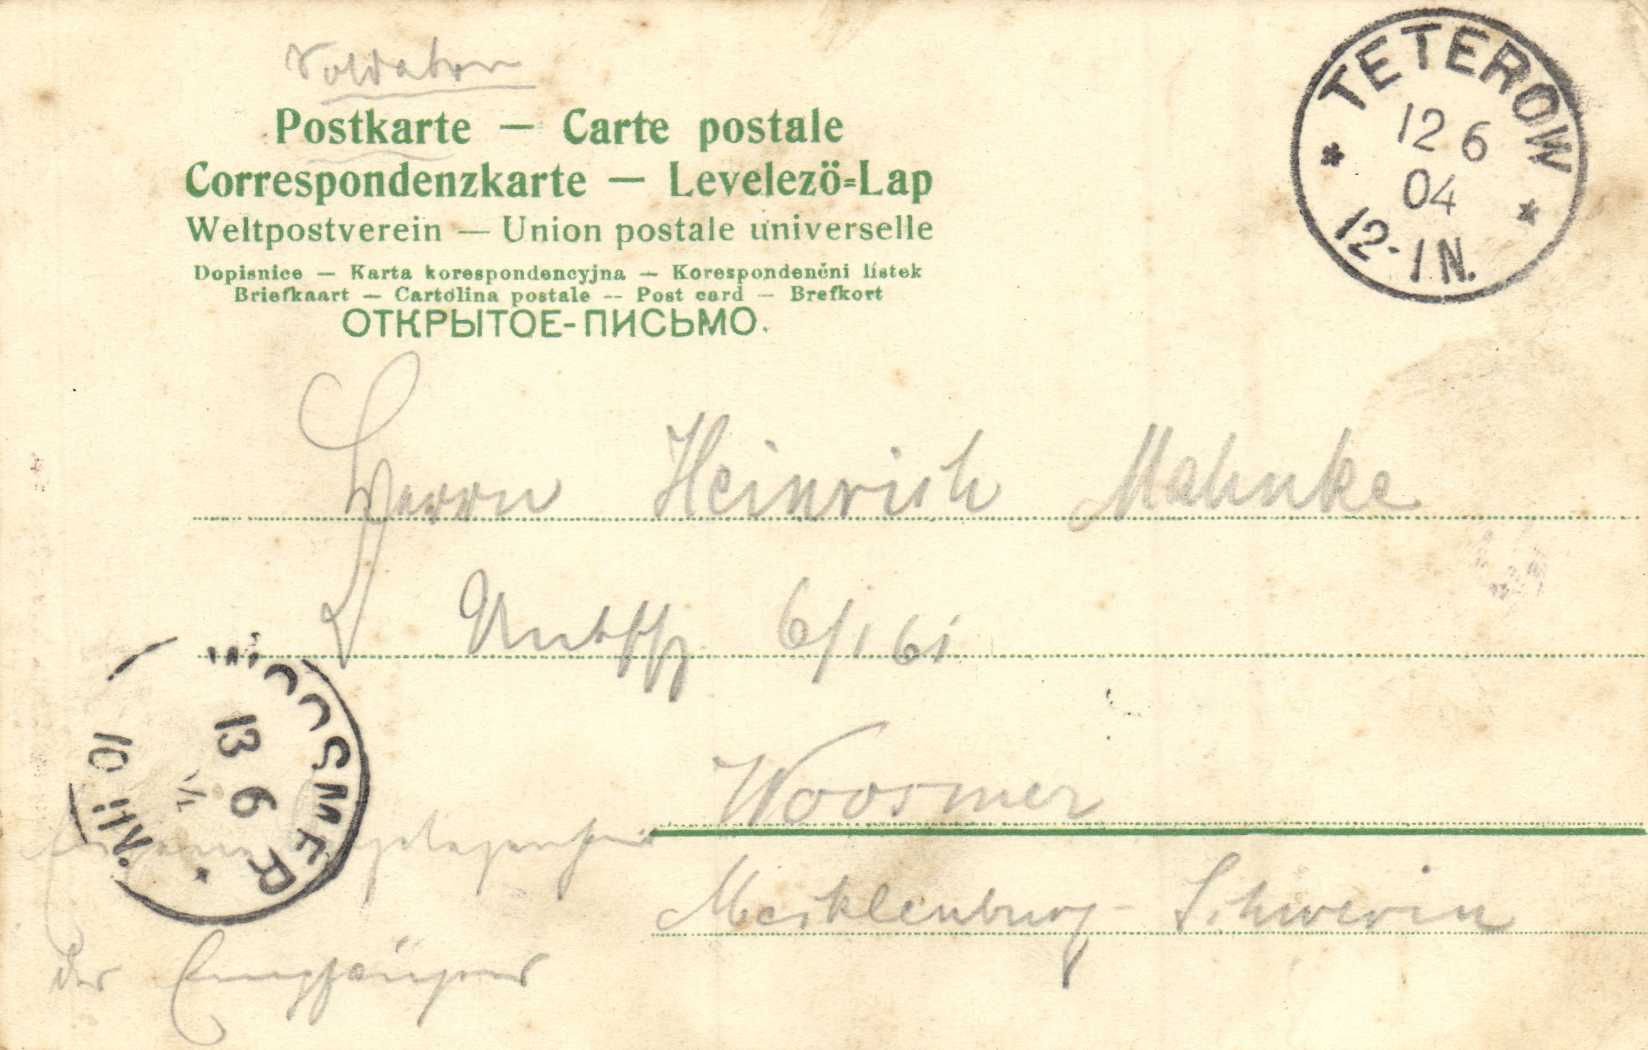 Soldaten
Postkarte — Carte postale
Correspondenzkarte — Levelezö-Lap
Weltpostverein — Union postale universelle
Dopisnice — Karta korespondencyjna — Korespondenční lístek
Briefkaart — Cartolina postale -- Post card — Brefkort
ОТКРЫТОЕ-ПИСЬМО.
* TETEROW *
12 6
04
12-1N.
Herrn Heinrich Mahnke
6/161
Woosmer
Mecklenburg-Schwerin
WOOSMER *
13 6
10 11 V.
Eigene Angelegenheit
des Empfängers